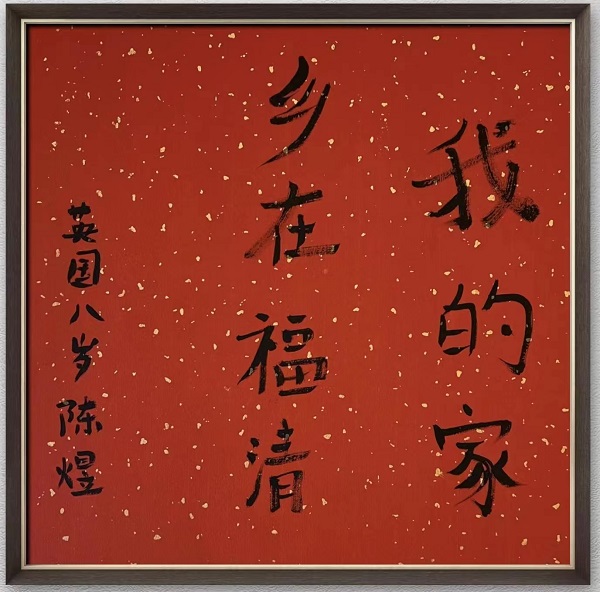 我的家
乡在福清
英国八岁陈煜